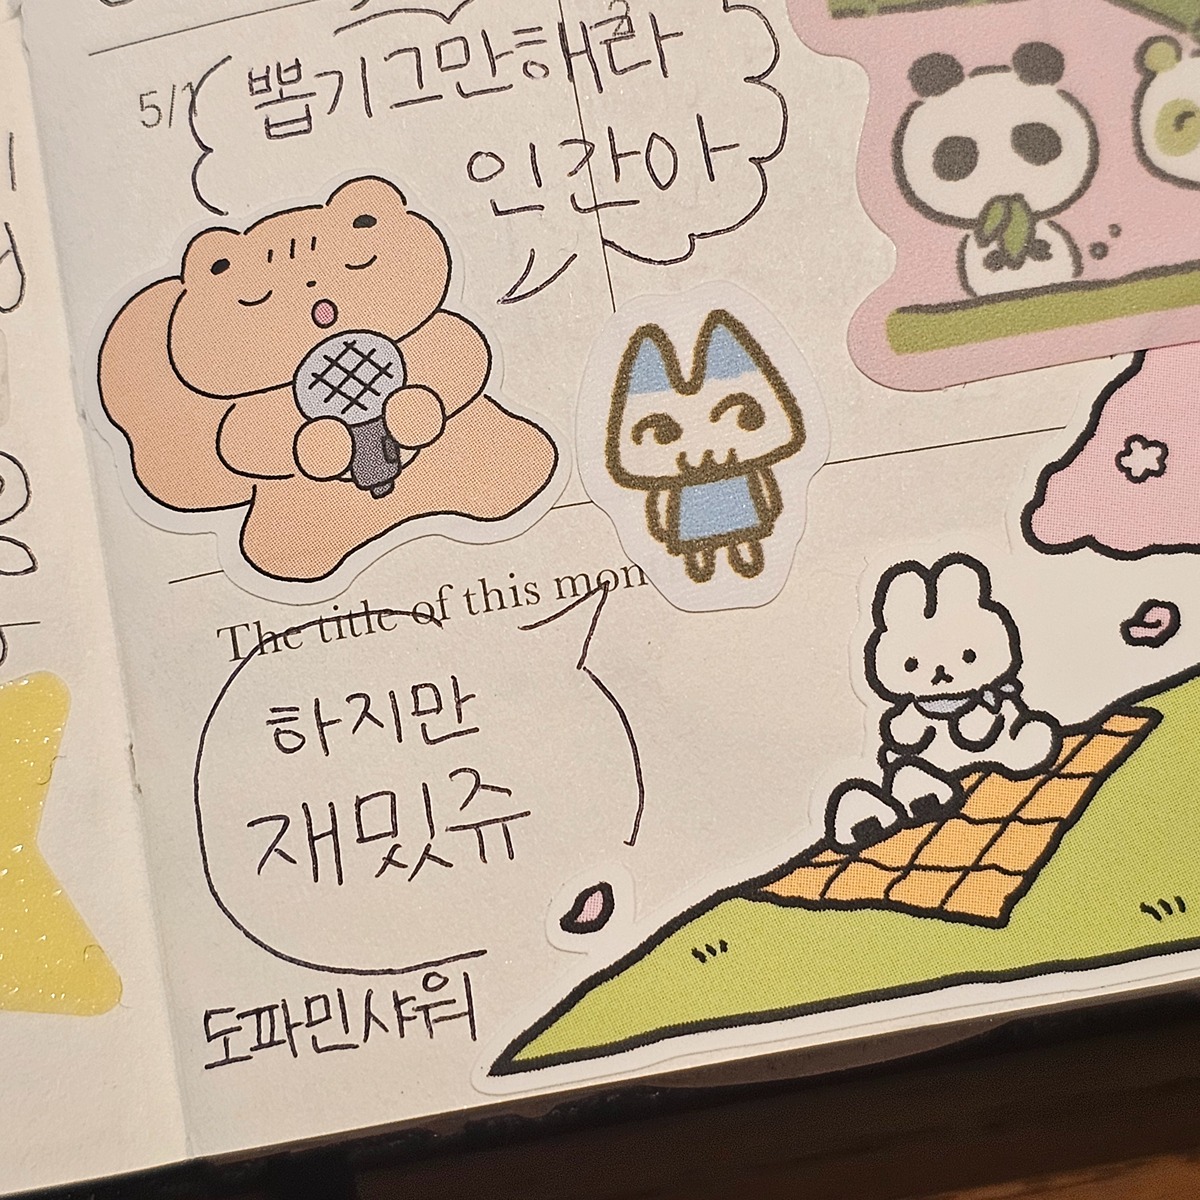 5/1
뽑기그만해라
인간아
The title of this mon
하지만
재밌쥬
도파민샤워